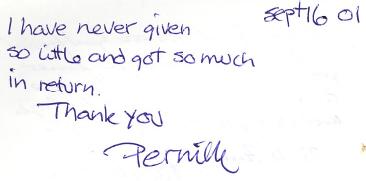 sept 16 01
I have never given
so little and got so much
in return.
Thank you
Pernille